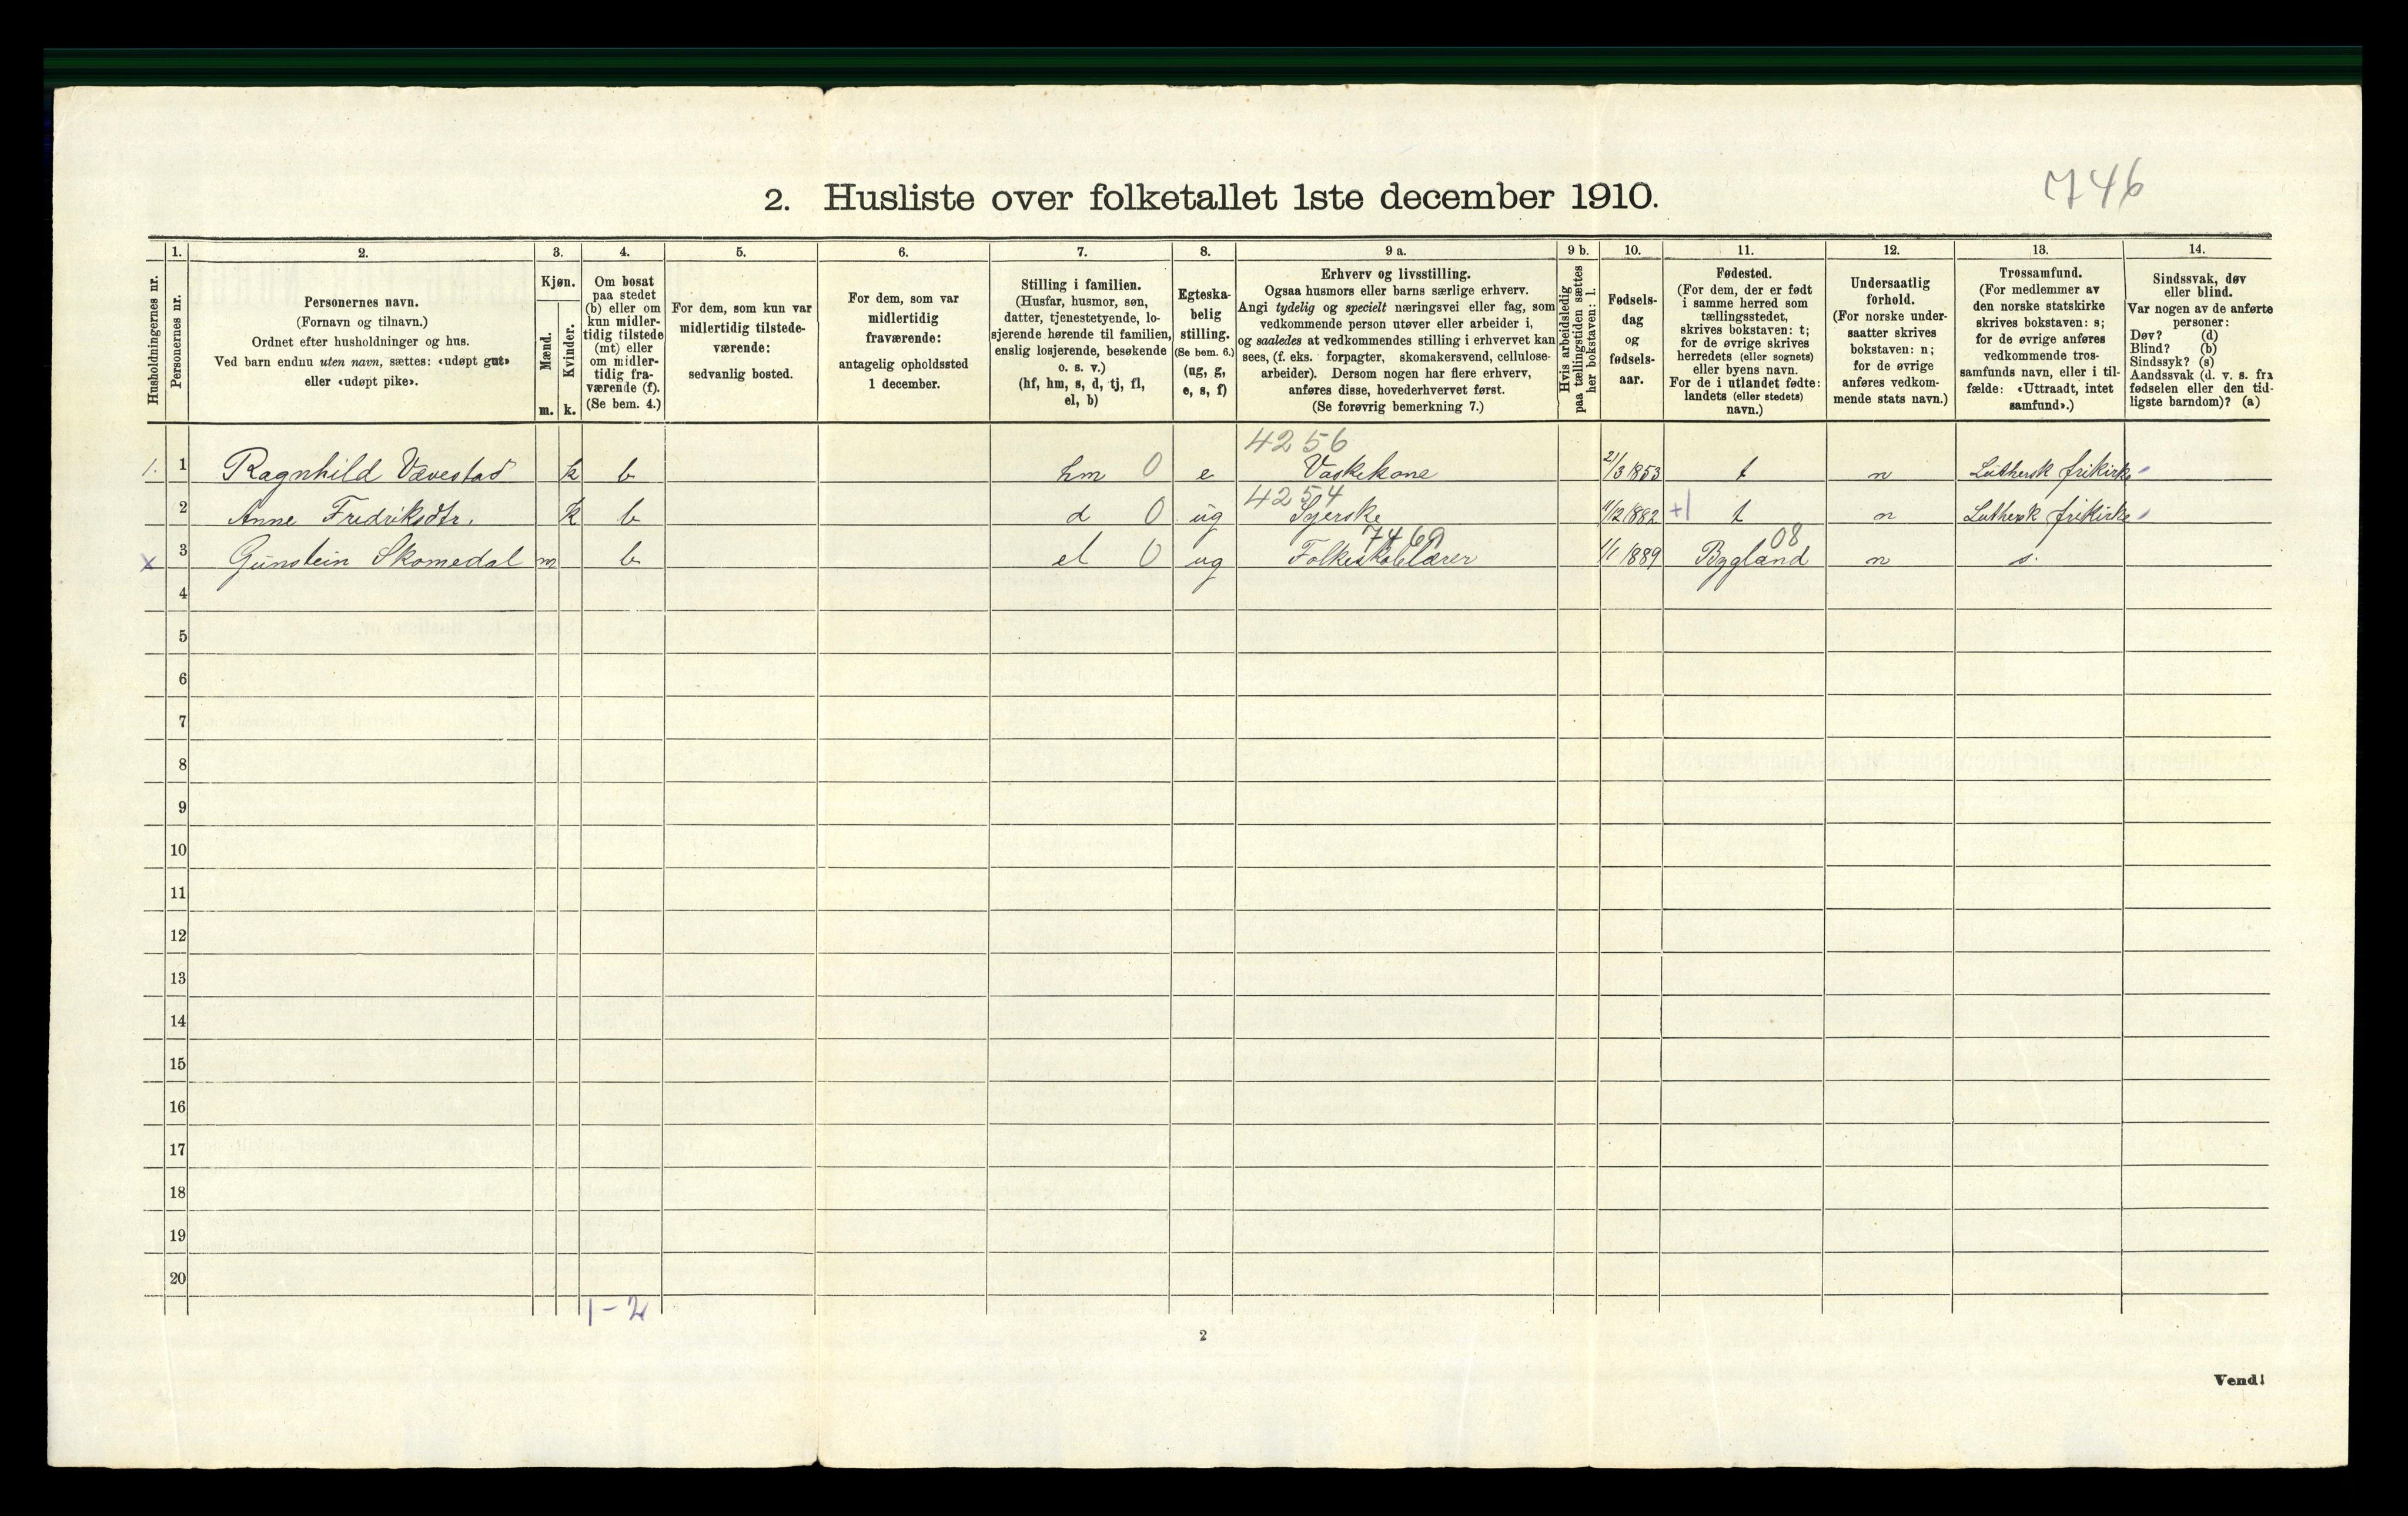 746
2. Husliste over folketallet 1ste december 1910.
Husholdningernes nr.
1.
Personernes nr.
2.
Personernes navn.
(Fornavn og tilnavn.)
Ordnet efter husholdninger og hus.
Ved barn endnu uten navn, sættes: «udøpt gut»
eller «udøpt pike».
3.
Kjøn.
Mænd.
Kvinder.
m. k.
4.
Om bosat
paa stedet
(b) eller om
kun midler-
tidig tilstede
(mt) eller
om midler-
tidig fra-
værende (f).
(Se bem. 4.)
5.
For dem, som kun var
midlertidig tilstede-
værende:
sedvanlig bosted.
6.
For dem, som var
midlertidig
fraværende:
antagelig opholdssted
1 december.
7.
Stilling i familien.
(Husfar, husmor, søn,
datter, tjenestetyende, lo-
sjerende hørende til familien,
enslig losjerende, besøkende
o. s. v.)
(hf, hm, s, d, tj, fl,
el, b)
8.
Egteska-
belig
stilling.
(Se bem. 6.)
(ug, g,
e, s, f)
9 a.
Erhverv og livsstilling.
Ogsaa husmors eller barns særlige erhverv.
Angi tydelig og specielt næringsvei eller fag, som
vedkommende person utøver eller arbeider i,
og saaledes at vedkommendes stilling i erhvervet kan
sees, (f. eks. forpagter, skomakersvend, cellulose-
arbeider). Dersom nogen har flere erhverv,
anføres disse, hovederhvervet først.
(Se forøvrig bemerkning 7.)
9 b.
Hvis arbeidsledig
paa tællingstiden sættes
her bokstaven: l.
10.
Fødsels-
dag
og
fødsels-
aar.
11.
Fødested.
(For dem, der er født
i samme herred som
tællingsstedet,
skrives bokstaven: t;
for de øvrige skrives
herredets (eller sognets)
eller byens navn.
For de i utlandet fødte:
landets (eller stedets)
navn.)
12.
Undersaatlig
forhold.
(For norske under-
saatter skrives
bokstaven: n;
for de øvrige
anføres vedkom-
mende stats navn.)
13.
Trossamfund.
(For medlemmer av
den norske statskirke
skrives bokstaven: s;
for de øvrige anføres
vedkommende tros-
samfunds navn, eller i til-
fælde: «Uttraadt, intet
samfund».)
14.
Sindssvak, døv
eller blind.
Var nogen av de anførte
personer:
Døv? (d)
Blind? (b)
Sindssyk? (s)
Aandssvak (d. v. s. fra
fødselen eller den tid-
ligste barndom)? (a)
4256
1. 1 Ragnhild Vævestad k b hm 0 e Vaskekone 21/3 1853 t n Luthersk frikirke
4254
2 Anne Fredriksdtr. k b d 0 ug Syerske 11/12 1882 +1 t n Luthersk frikirke
7469 08
x 3 Gunstein Skomedal m b el 0 ug Folkeskolelærer 1/1 1889 Bygland n s.
4
5
6
7
8
9
10
11
12
13
14
15
16
17
18
19
20
1-2
2
Vend!